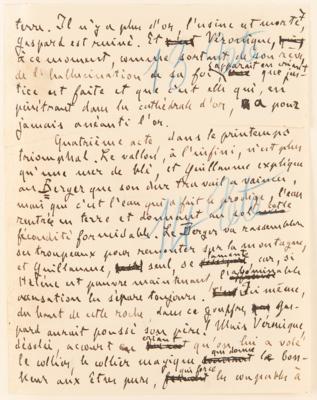 7
terre. Il n'y a plus d'or, l'usine est morte,
Gaspard est ruiné. Et Véronique,
à ce moment, comme sortant de son rêve,
de l'hallucination de sa foi, apparaît en criant que jus-
tice est faite et que c'est elle qui, en
pénétrant dans la cathédrale d'or, a pour
jamais anéanti l'or.
Quatrième acte, dans le printemps
triomphal. Le vallon, à l'infini, n'est plus
qu'une mer de blé, et Guillaume explique
au Berger que son dur travail a vaincu,
mais que c'est l'eau qui a fait le prodige, l'eau
rentrée en terre et donnant au sol cette
fécondité formidable. Le Berger va rassembler
ses troupeaux pour remonter sur la montagne,
et Guillaume, seul, se lamente, car, si
Hélène est pauvre maintenant, l'abominable
accusation les sépare toujours. Lui-même,
du haut de cette roche, dans ce gouffre, Gas-
pard aurait poussé son père! Mais Véronique,
désolée, accourt, criant qu'on lui a volé
le collier, le collier magique qui donne le bon-
heur aux êtres purs, qui force les coupables à